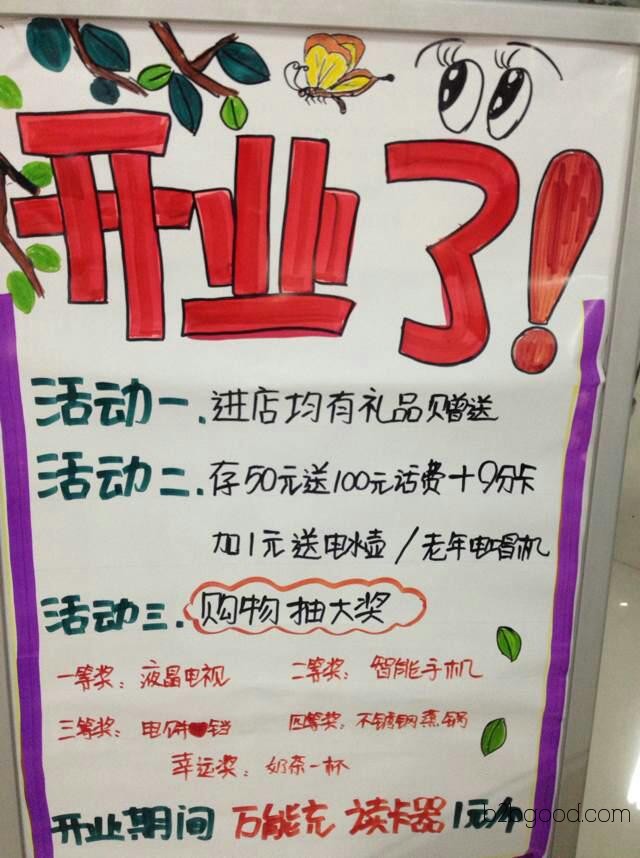 开业了！
活动一.进店均有礼品赠送
活动二.存50元送100元话费+9分卡
加1元送电水壶/老年电唱机
活动三.购物抽大奖
一等奖：液晶电视 二等奖：智能手机
三等奖：电饼铛 四等奖：不锈钢蒸锅
幸运奖：奶茶一杯
开业期间 万能充 读卡器 1元/个
b2bgood.com